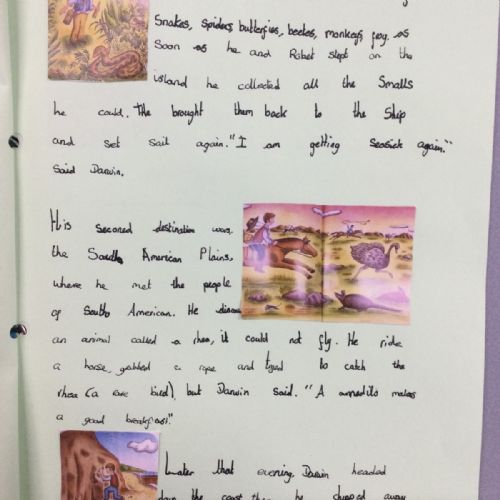 Snakes, spiders, butterflies, beetes, monkeys, frog. as
Soon as he and Robet stept on the
island he collected all the Smalls
he could. The brought them back to the Ship
and set sait again. "I am getting Seasick again."
Said Darwin.
His seconed destination was,
the South American Plains,
where he met the people
of South American. He
an animal called a rhea, it could not fly. He ride
a horse, grabbed a rope and tryed to catch the
rhea (a rare bird), but Darwin said. "A armedilo makes
a good breakfast."
Later that evening, Darwin headed
down the coast then he chopped away